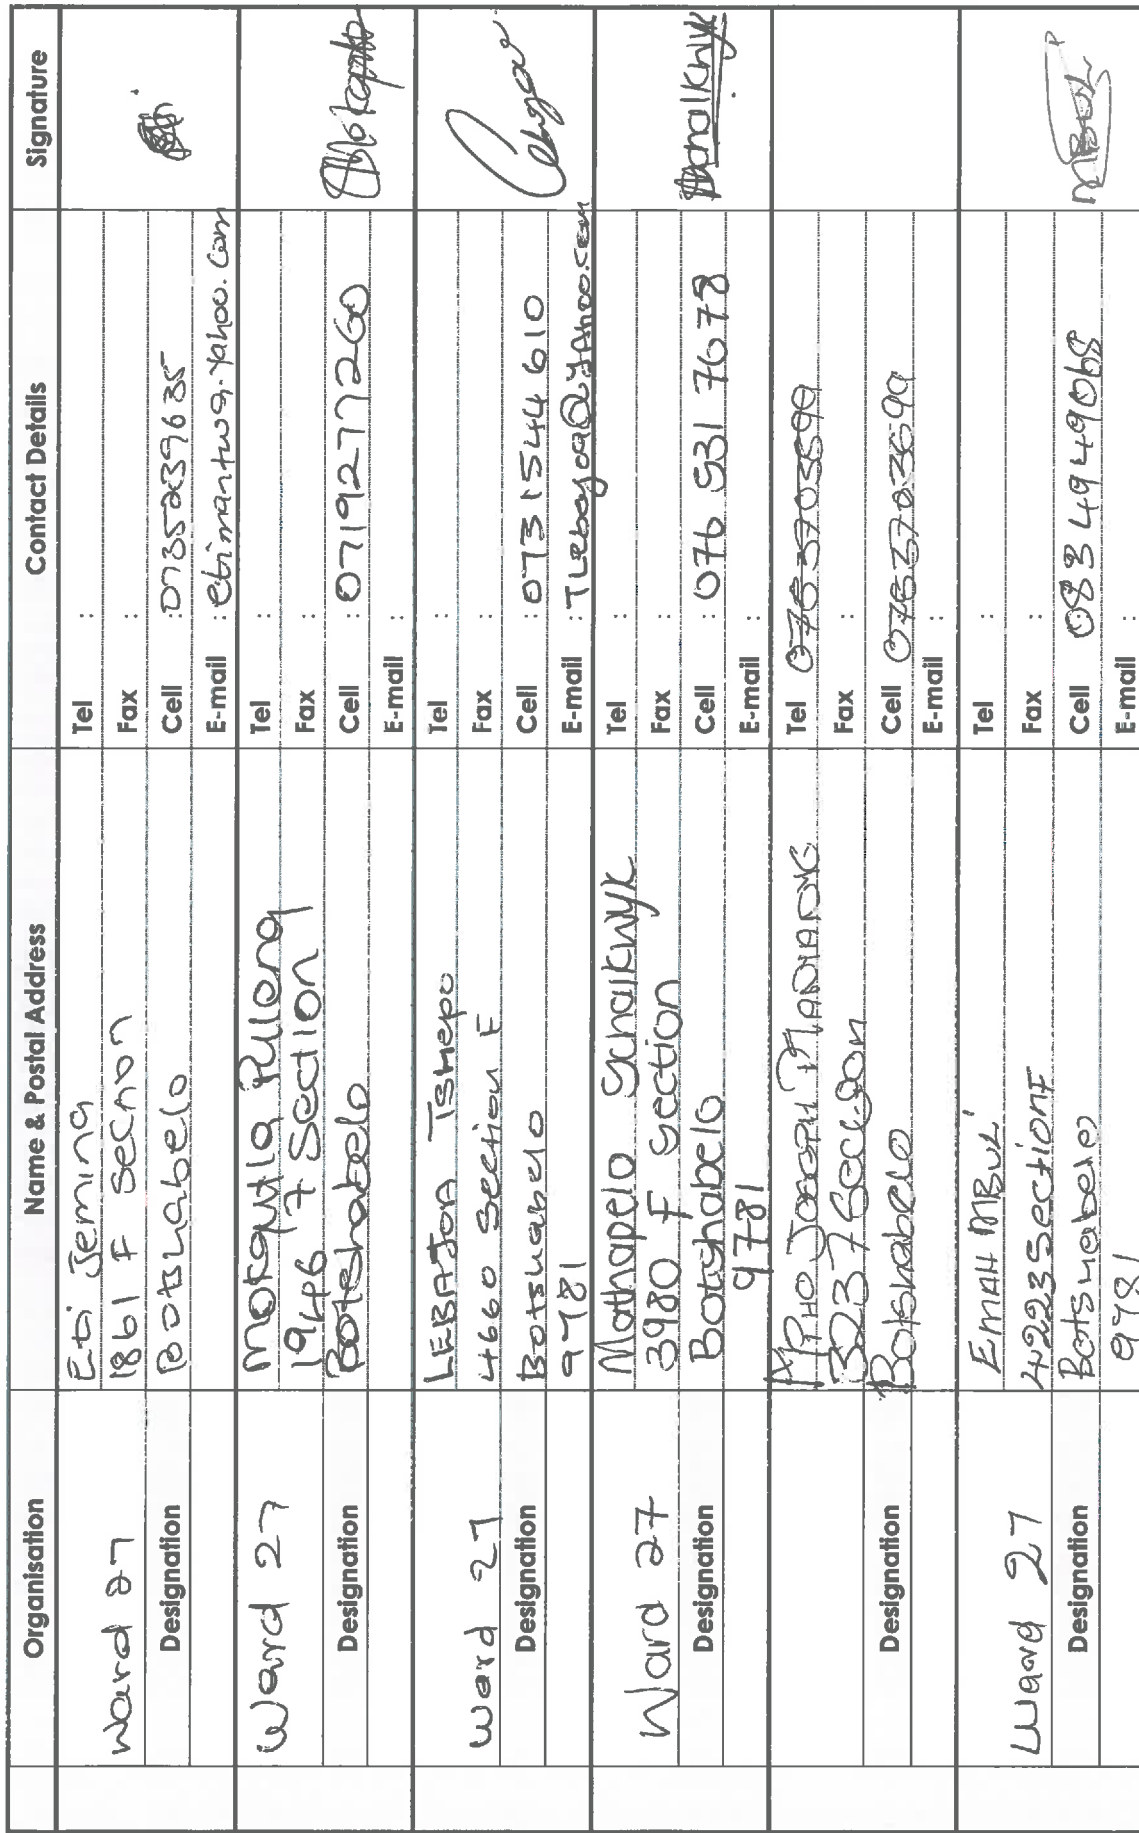 Organisation Name & Postal Address Contact Details Signature
Ward 27
Designation
Eti Jemina
1861 F Section
Botshabelo
Tel :
Fax :
Cell : 0735239635
E-mail : etimantwa.yahoo.com
Ward 27
Designation
Mokqutla Puleng
1946 7 Section
Botshabelo
Tel :
Fax :
Cell : 0719277260
E-mail :
Ward 27
Designation
LEBAJOA TSHEPO
4660 Section F
Botshabelo
9781
Tel :
Fax :
Cell : 0731544610
E-mail : TLebajoa@Yahoo.com
Ward 27
Designation
Mathapelo Schalkwyk
3980 F Section
Botshabelo
9781
Tel :
Fax :
Cell : 076 531 7678
E-mail :
Schalkwyk
Designation
MPHO JOSEPH
3237 Section
Botshabelo
Tel
Fax :
Cell
E-mail :
Ward 27
Designation
EMAH MBUI
4223 Section F
Botshabelo
9781
Tel :
Fax :
Cell : 0834949068
E-mail :